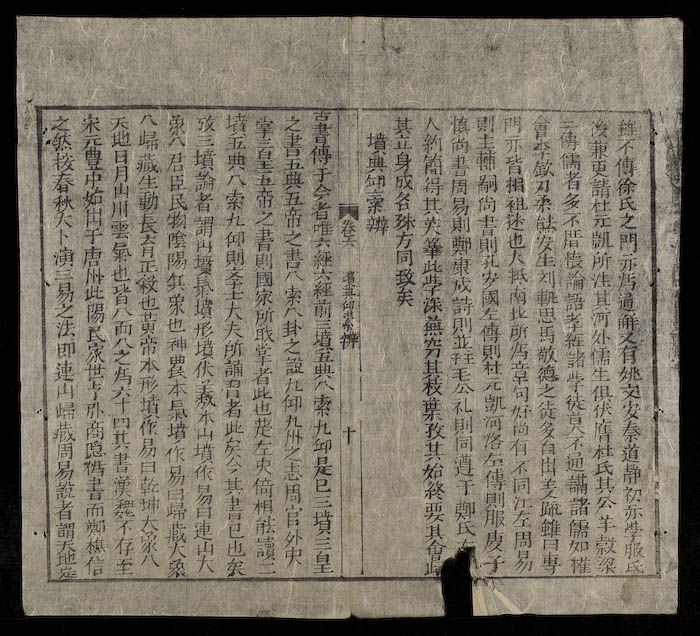 雖不傳徐氏之門亦爲通解又有姚文安秦道静初亦學服氏
後兼更講杜元凱所注其河外儒生俱伏膺杜氏其公羊穀梁
二傳儒者多不厝懷論語孝經諸學徒莫不通講諸儒如權
會李鉉刁柔熊安生刘軌思馬敬德之徒多自出义疏雖曰專
門亦皆相祖述也大抵南北所爲章句好尚有不同江左周易
則王輔嗣尚書則孔安國左傳則杜元凱河洛左傳則服虔子
慎尚書周易則鄭康成詩則並主毛公礼則同遵于鄭氏南
人約簡得其英華北學深蕪窮其枝葉攷其始終要其會歸
其立身成名殊方同致矣
墳典邱索辨
卷六 墳典邱索辨 十
古書傳于今者唯六經六經前三墳五典八索九邱是已三墳三皇
之書五典五帝之書八索八卦之說九邱九州之志周官外史
掌三皇五帝之書則國家所職掌者此也楚左史倚相能讀三
墳五典八索九邱則學士大夫所誦習者此矣今其書已亡矣
攷三墳論者謂山墳氣墳形墳伏羲本山墳作易曰連山大
象八君臣民物陰陽兵象也神農本氣墳作易曰歸藏大象
八歸藏生動長育止殺也黄帝本形墳作易曰乾坤大象八
天地日月山川雲氣也皆八而八之爲六十四其書漢魏不存至
宋元豐中始出于唐州比陽民家世商隐舊書而鄭樵信
之然按春秋太卜演三易之法即連山歸藏周易說者謂天地定